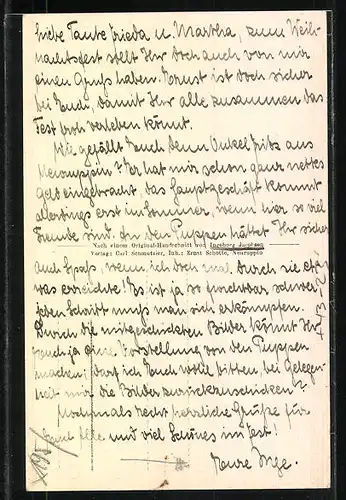 Liebe Tante Frieda u. Martha, zum Weih-
nachtsfest sollt Ihr doch auch von mir
einen Gruß haben. Ernst ist doch sicher
bei Euch, damit Ihr alle zusammen das
Fest froh verleben könnt.
Wie gefällt Euch denn Onkel Fritz aus
Neuruppin? Der hat mir schon ganz nettes
Geld eingebracht, das Hauptgeschäft kommt
allerdings erst im Sommer, wenn hier so viel
Fremde sind. An den Puppen hättet Ihr sicher
Nach einem Original-Handschnitt von Ingeborg
Verlag: Carl Schmetzler, Inh.: Ernst Schötte, Neuruppin
auch Spaß, wenn ich doch mal durch sie
was erreichte! Es ist ja so furchtbar schwer,
jeden Schritt muß man sich erkämpfen.
Durch die mitgeschickten Bilder könnt Ihr
Euch ja eine Vorstellung von den Puppen
machen! Darf ich Euch wohl bitten, bei Gelegen-
heit mir die Bilder zurückzuschicken?
Nochmals recht herzliche Grüße für
Euch alle und viel Schönes im Fest!
Eure Inge.